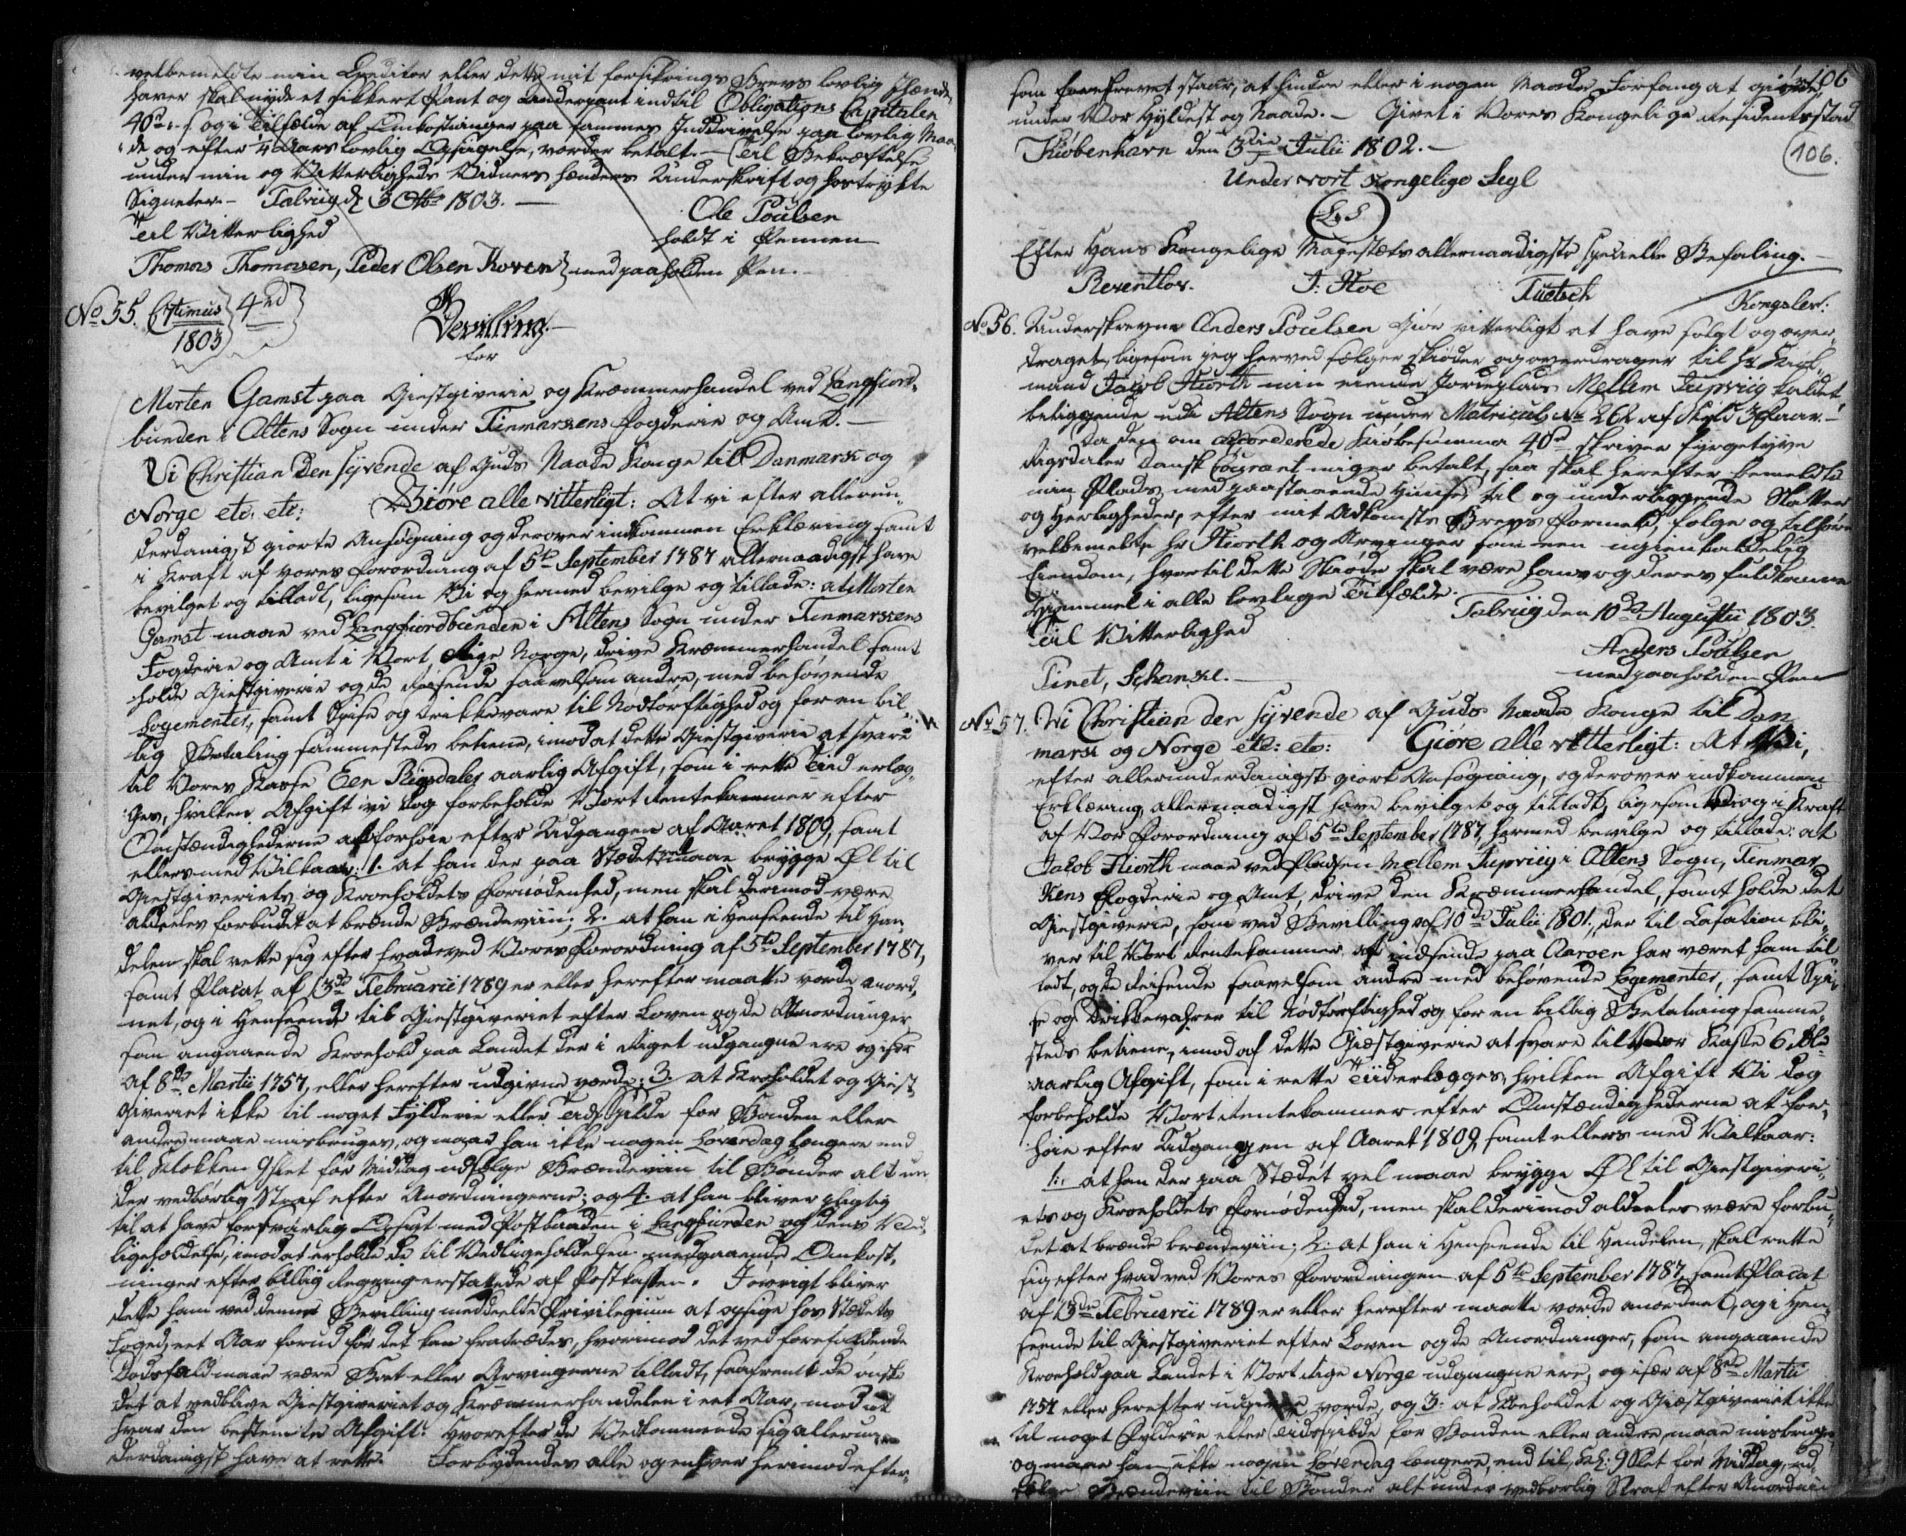 velbemeldte min Creditor eller dette mit forsikrings Brevs lovlig ihænde
haver skal nyde et sikkert Pant og Underpant indtil Obligations Capitalen
40rd og i Tilfælde af Omkostninger paa sammes Inddrivelse paa lovlig Maa
de og efter 4 Aars lovlig Opsigelse, vorder betalt. — Til Bekræftelse
under min og Vitterligheds Vidners hænders Underskrift og hostrykte
Signeter. — Talviig d 3 Octbr 1803. —
Til Vitterlighed
Ole Poulsen
holdt i Pennen
Thomas Thomassen, Peder Olsen Koven } med paaholden Pen. —
No 55. Optimus 4rd
1803
Bevilling
for
Morten Gamst paa Giestgiverie og Kræmmerhandel ved Langfiord-
bunden i Altens Sogn under Finmarkens Fogderie og Amt. —
Vi Christian den Syvende af Guds Naade Konge til Danmark og
Norge etc. etc: Giøre alle vitterligt: At vi, efter allerun-
derdanigst giorte Ansøgning og derover indkommen Erklæring samt
i Kraft af vores Forordning af 5te September 1787 allernaadigst have
bevilget og tilladt, ligesom Vi og hermed bevilge og tillade: at Morten
Gamst maae ved Langfiordbunden i Altens Sogn under Finmarkens
Fogderie og Amt i Vort Rige Norge, drive Kræmmerhandel samt
holde Giestgiverie og de Reisende saavelsom andre, med behøvende
Logementer, samt Spise og Drikkevare til Nødtørftighed og for en bil-
lig Betaling sammesteds betiene, imod at dette Giestgiverie at svare
til Vores Kasse Een Rigsdaler aarlig Afgift, som i rette Tiid erlæg-
ges, hvilken Afgift vi dog forbeholde Vort Rentekammer efter
Omstændighederne at forhøie efter Udgangen af Aaret 1809, samt
ellers med Vilkaar: 1. at han der paa Stædet maae brygge Øl til
Giestgiveriets og Kroeholdets Fornødenhed, men skal derimod være
aldeeles forbudet at brænde Brændeviin; 2. at han i Henseende til Han-
delen skal rette sig efter hvad ved Vores Forordning af 5te September 1787,
samt Placat af 13de Februarii 1789 er eller herefter maatte vorde anord-
net, og i Henseende til Giestgiveriet efter Loven og de Anordninger
som angaaende Kroehold paa Landet der i Riget udgangne ere og især
af 8de Martii 1757, eller herefter udgivne vorde; 3. at Kroeholdet og Giest-
giveriet ikke til noget Fylderie eller Tidsspilde for Bonden eller
andre maae misbruges, og maae han ikke nogen Løverdag længere end
til Klokken 9 slet før Middag udsælge Brændeviin til Bønder alt un-
der vedbørlig Straf efter Anordningerne; og 4. at han bliver pligtig
til at have forsvarlig Opsigt med Postbaaden i Langfiorden og dens Ved-
ligeholdelse, imod at erholde de til Vedligeholdelsen medgaaende Omkost-
ninger efter billig Regning erstattede af Postkassen. Iøvrigt bliver
dette ham ved denne Bevilling meddeelte Privilegium at opsige hos Stædets
Foged, eet Aar forud før det kan fratrædes, hvorimod det ved forefaldende
Dødsfald maae være Boet eller Arvingerne tilladt, saafremt de ønske
det at vedblive Giestgiveriet og Kræmmerhandelen i eet Aar, mod at
svare den bestemte Afgift. Hvorefter de Vedkommende sig allerun-
derdanigst have at rette. Forbydendes alle og enhver herimod efter-
som foreskrevet staar, at hindre eller i nogen Maade Forfang at giøre
106
under Vor Hyldest og Naade. — Givet i Vores Kongelige Residentsstad
Kiøbenhavn den 3die Julii 1802. —
106.
Under vort Kongelige Segl
(L.S)
Efter Hans Kongelige Majestæts allernaadigste specielle Befaling. —
Reventlov. J. Hoe
Kongslev:
No 56. Underskrevne Anders Poulsen Giør vitterligt at have solgt og over-
draget, ligesom jeg herved sælger skiøder og overdrager til Hr. Kiøb-
mand Jacob Hiorth min eiende Jordeplads Mellem Jupviig kaldet
beliggende udi Altens Sogn under Matricul No 262 af Skyld 3 Klaar. —
Da den om accorderede Kiøbesumma 40rd skriver Fyrgetyve
Rigsdaler Dansk Courant mig er betalt, saa skal herefter bemeldte
min Plads med paastaaende Huuse til og underliggende Sletter
og Herligheder, efter mit Adkomsts Brevs Formeld, følge og tilhøre
velbemelte Hr Hiorth og Arvinger som een uigienkaldelig
Eiendom, hvortil dette Skiøde skal være hans og deres fuldkomne
Hiemmel i alle lovlige Tilfælde.
Talviig den 10de Augustii 1803.
Til Vitterlighed
Anders Poulsen
med paaholden Pen
Pinet, Schanke. —
No 57. Vi Christian den Syvende af Guds Naade Konge til Dan
mark og Norge etc: etc: Giøre alle vitterligt: At Vi,
efter allerunderdanigst giort Ansøgning, og derover indkommen
Erklæring allernaadigst have bevilget og tilladt, ligesom Vi og i Kraft
af Vor Forordning af 5te September 1787, hermed bevilge og tillade: at
Jakob Hiorth maae ved Pladsen Mellem Jupviig i Altens Sogn, Finmar
kens Fogderie og Amt, drive den Kræmmerhandel, samt holde det
Giestgiverie, som ved Bevilling af 10de Julii 1801, der til Casation bli-
ver til Vort Rentekammer at indsende paa Aarøen har været ham til
ladt, og de Reisende saavelsom andre med behøvende Logementer, samt Spi-
se og Drikkevahrer til Nødtørftighed og for en billig Betaling samme-
steds betiene, imod af dette Giæstgiverie at svare til Vor Kasse 6 Rdlr
aarlig Afgift, som i rette Tiid erlægges, hvilken Afgift Vi dog
forbeholde Vort Rentekammer efter Omstændighederne at for-
høie efter Udgangen af Aaret 1809, samt ellers med Vilkaar:
1: at han der paa Stædet vel maae brygge Øl til Giestgiveri-
ets og Kroeholdets Fornødenhed, men skal derimod aldeeles være forbu-
det at brænde brændeviin; 2: at han i Henseende til Handelen, skal rette
sig efter hvad ved Vores Forordningen af 5te September 1787, samt Placat
af 13de Februarii 1789 er eller herefter maatte vorde anordnet, og i Hen-
seende til Giestgiveriet efter Loven og de Anordninger, som angaaende
Kroehold paa Landet i Vort Rige Norge udgangne ere, og især af 8de Martii
1757 eller herefter udgivne vorde, og 3: at Kroeholdet og Giæstgiveriet ikke
til noget Fylderie eller Tidsspilde for Bonden eller andre maae misbruges
og maae han ikke nogen Løverdag længere, end til Kl: 9 slet før Middag, ud-
sælge Brændeviin til Bønder alt under vedbørlig Straf efter Anordnin